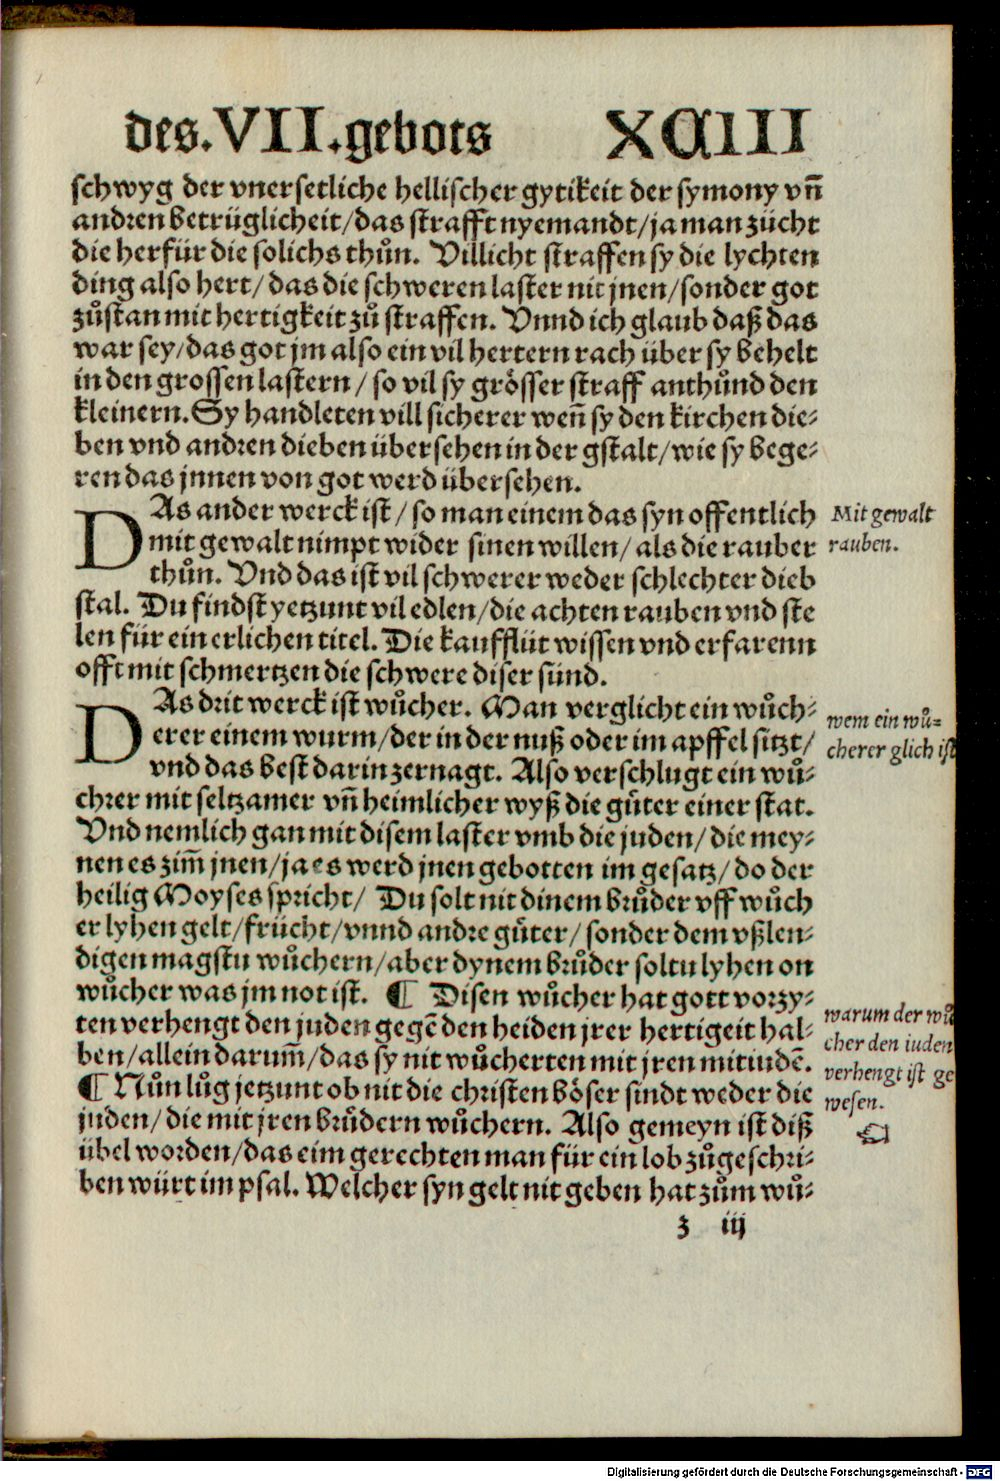 des.VII.gebots XCIIII
schwyg der vnersetliche hellischer gytikeit der symony vñ
andren betrüglicheit/das strafft nyemandt/ja man zücht
die herfür die solichs thůn. Villicht straffen sy die lychten
ding also hert/das die schweren laster nit jnen/sonder got
zůstan mit hertigkeit zů straffen. Vnnd ich glaub daß das
war sey/das got jm also ein vil hertern rach über sy behelt
in den grossen lastern/so vil sy grösser straff anthůnd den
kleinern. Sy handleten vill sicherer weñ sy den kirchen die-
ben vnd andren dieben übersehen in der gstalt/wie sy bege-
ren das jnnen von got werd übersehen.
DAs ander werck ist/so man einem das syn offentlich
mit gewalt nimpt wider sinen willen/als die rauber
thůn. Vnd das ist vil schwerer weder schlechter dieb
stal. Du findst yetzunt vil edlen/die achten rauben vnd ste
len für ein erlichen titel. Die kaufflüt wissen vnd erfarenn
offt mit schmertzen die schwere diser sünd.
Mit gewalt
rauben.
DAs drit werck ist wůcher. Man verglicht ein wůch-
erer einem wurm/der in der nuß oder im apffel sitzt/
vnd das best darin zernagt. Also verschlugt ein wů-
chrer mit seltzamer vñ heimlicher wyß die gůter einer stat.
Vnd nemlich gan mit disem laster vmb die juden/die mey-
nen es zim̃ jnen/ja es werd jnen gebotten im gesatz/do der
heilig Moyses spricht/ Du solt nit dinem brůder vff wůch
er lyhen gelt/frücht/vnnd andre gůter/sonder dem vßlen-
digen magstu wůchern/aber dynem brůder soltu lyhen on
wůcher was jm not ist. ¶ Disen wůcher hat gott vorzy-
ten verhengt den juden gegẽ den heiden jrer hertigeit hal-
ben/allein darum̃/das sy nit wůcherten mit jren mitiudẽ.
¶ Nůn lůg jetzunt ob nit die christen böser sindt weder die
juden/die mit jren brůdern wůchern. Also gemeyn ist diß
übel worden/das eim gerechten man für ein lob zůgeschri-
ben würt im psal. Welcher syn gelt nit geben hat zům wů-
wem ein wů=
cherer glich ist
warum der wů
cher den iuden
verhengt ist ge
wesen.
z iij
Digitalisierung gefördert durch die Deutsche Forschungsgemeinschaft - DFG